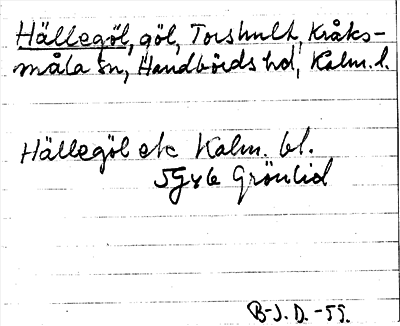 Hällegöl, göl, Torshult, Kråks-
måla sn, Handbörds hd, Kalm. l.
Hällegöl ek Kalm. bl.
5G y6 Grönlid
B-J. D. -55.